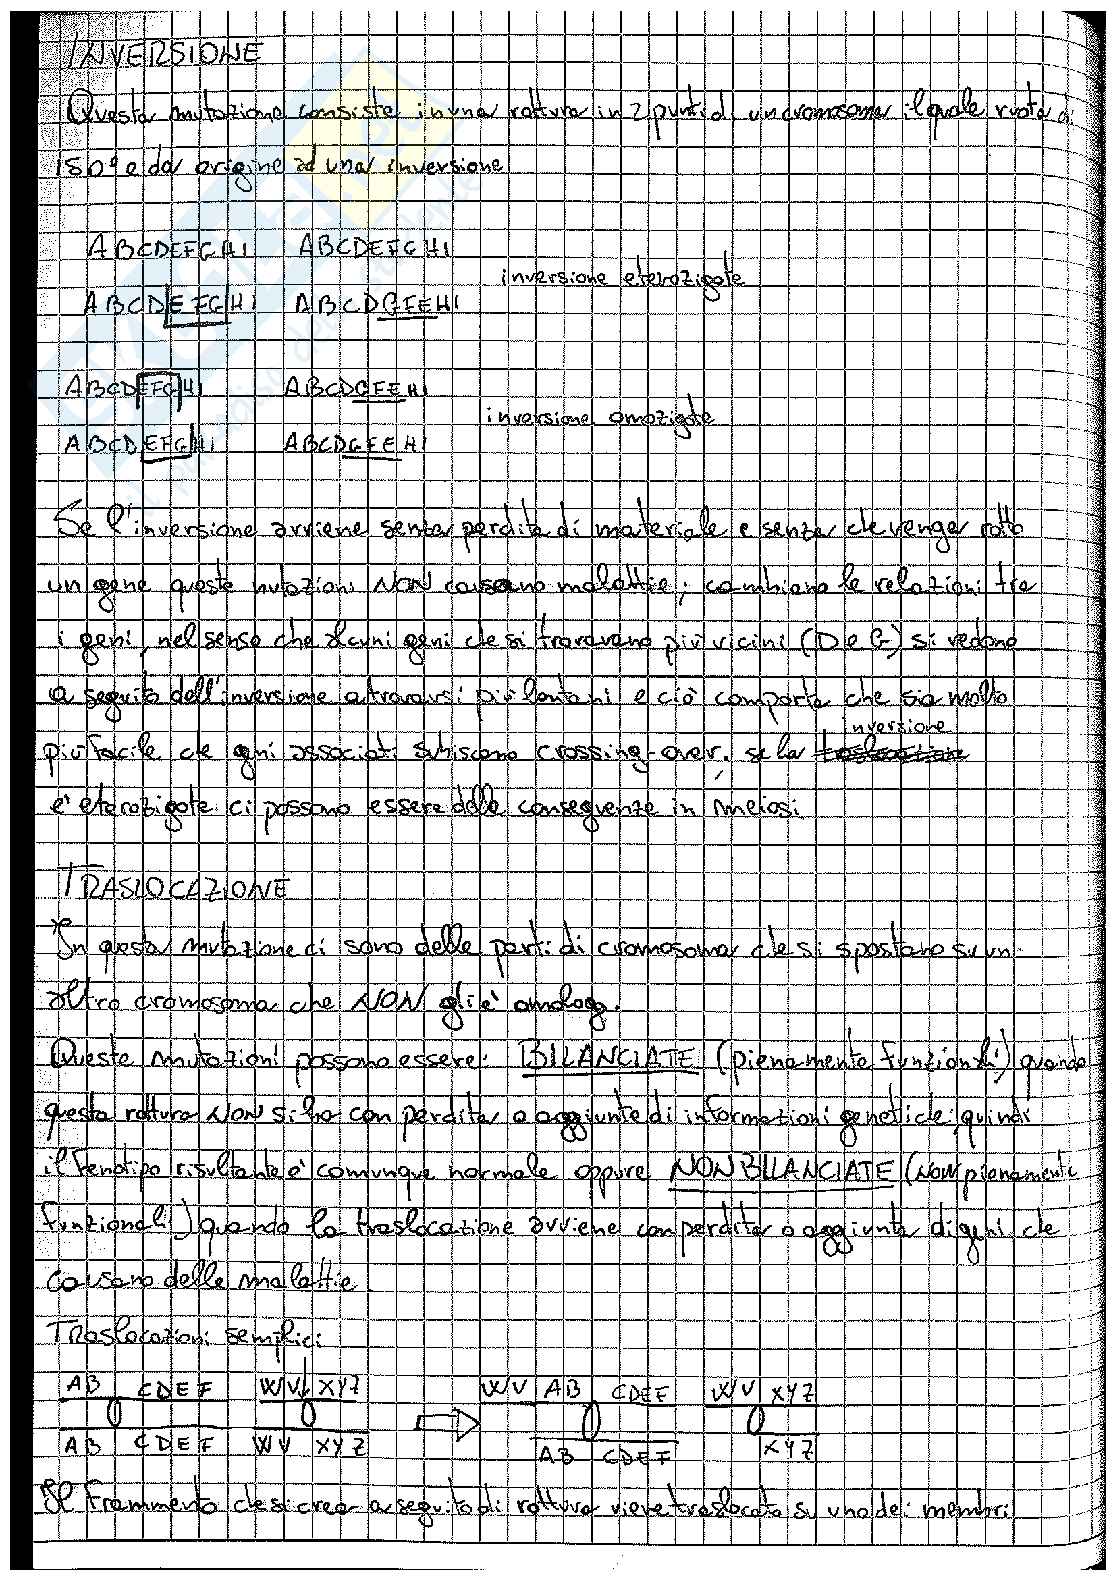 INVERSIONE
Questa mutazione consiste in una rottura in 2 punti di un cromosoma il quale ruota di
180° e da origine ad una inversione
ABCDEFGHI ABCDEFGHI
inversione eterozigote
ABCDEFGHI ABCDGFEHI
ABCDEFGHI ABCDGFEHI
inversione omozigote
ABCDEFGHI ABCDGFEHI
Se l'inversione avviene senza perdita di materiale e senza che venga rotto
un gene queste mutazioni NON causano malattie; cambiano le relazioni tra
i geni, nel senso che alcuni geni che si trovavano più vicini (D e G) si vedono
a seguito dell'inversione a trovarsi più lontani e ciò comporta che sia molto
inversione
più facile che geni associati subiscano crossing-over; se la traslocazione
è eterozigote ci possono essere delle conseguenze in meiosi
TRASLOCAZIONE
In questa mutazione ci sono delle parti di cromosoma che si spostano su un
altro cromosoma che NON gli è omologo.
Queste mutazioni possono essere: BILANCIATE (pienamente funzionali) quando
questa rottura NON si ha con perdita o aggiunte di informazioni genetiche; quindi
il fenotipo risultante è comunque normale oppure NON BILANCIATE (NON pienamente
funzionali) quando la traslocazione avviene con perdita o aggiunta di geni che
causano delle malattie.
Traslocazioni semplici:
AB CDEF WV XYZ WV AB CDEF WV XYZ
AB CDEF WV XYZ AB CDEF XYZ
Il frammento che si crea a seguito di rottura viene traslocato su uno dei membri